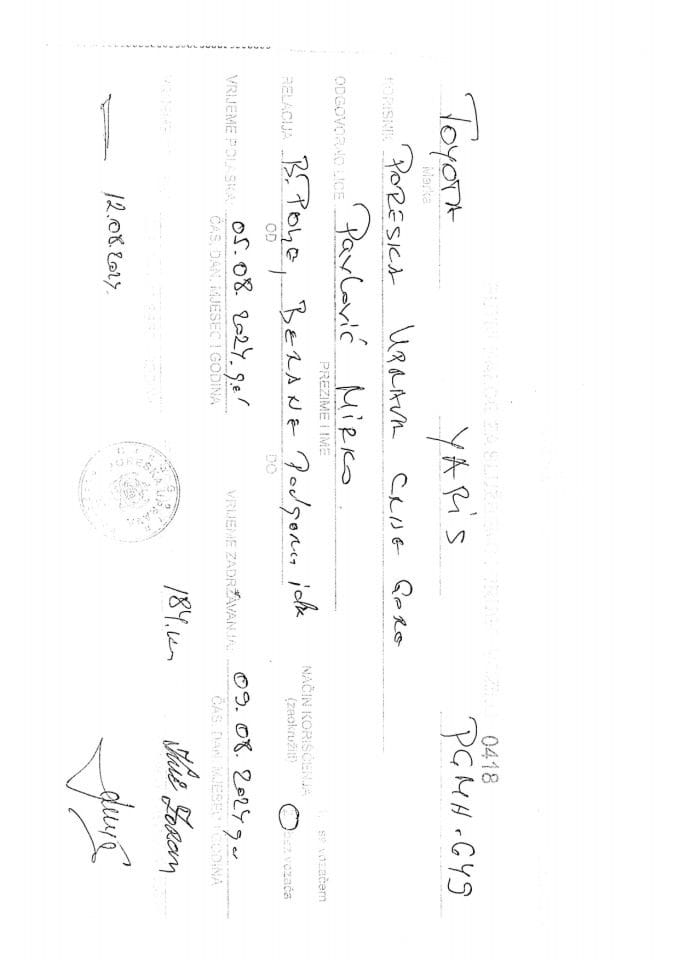 0418
TOYOTA YARIS PGMH-649
Marka
KORISNIK PORESKA UPRAVA CRNE GORE
ODGOVORNO LICE Pavlović Mirko
PREZIME I IME
NAČIN KORIŠĆENJA
(zaokružiti)
1. sa vozačem
2. bez vozača
RELACIJA B. Polje, BERANE Podgorica idr
OD DO
VRIJEME POLASKA: 05.08.2024.g.
ČAS, DAN, MJESEC I GODINA
VRIJEME ZADRŽAVANJA: 09.08.2024 g.
ČAS, DAN, MJESEC I GODINA
184 km
12.08.2024.